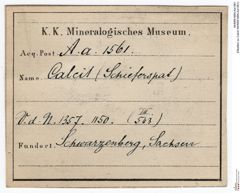 K. K. Mineralogisches Museum.
Acq. Post A.a. 1561.
Name. Calcit (Schieferspat)
V.d.N. 1357. 1150. (VII/543)
Fundort. Schwarzenberg, Sachsen